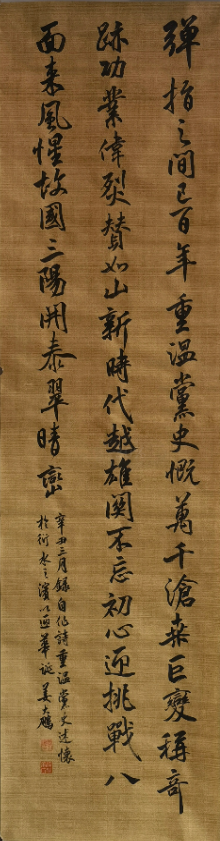 彈指之間已百年重溫黨史慨萬千滄桑巨變稱奇
跡功業偉烈贊如山新時代越雄關不忘初心迎挑戰八
面來風惺故國三陽開泰翠晴巒
辛丑三月錄自作詩重溫黨史述懷
於衍水之濱以匝華誕姜大